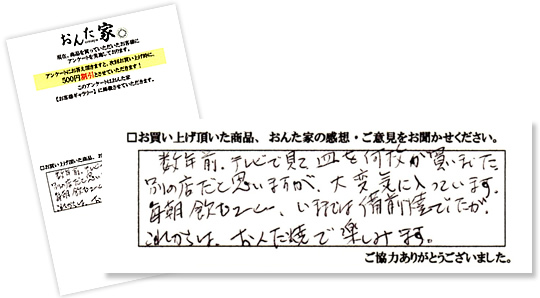 おんた家
現在、商品を買っていただいたお客様に
アンケートを実施しております。
アンケートにお答え頂きますと、次回お買い上げ時に、
500円割引とさせていただきます！
このアンケートはおんた家
【お客様ギャラリー】に掲載させていただきます。
□お買い上げ頂いた商品、お
数年前、テレビで
別の店だと思い
毎朝飲む
これからは、お
□お買い上げ頂いた商品、おんた家の感想・ご意見をお聞かせください。
数年前、テレビで見て皿を何枚か買いました
別の店だと思いますが、大変気に入っています。
毎朝飲むコーヒー、いままでは備前焼でしたが、
これからは、おんた焼で楽しみます。
ご協力ありがとうございました。